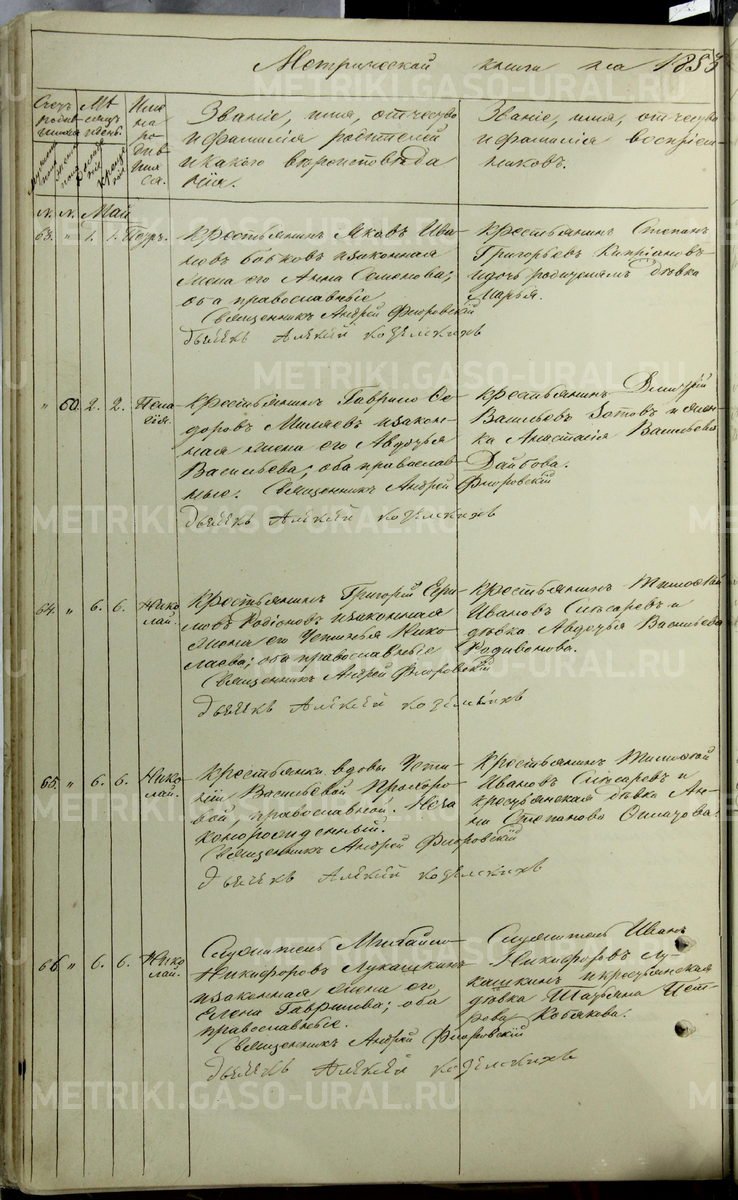 Метрической книги на 1853
Счетъ родившихся
Мѣсяцъ и день.
Имена родившихся.
Званіе, имя, отчество
и фамилія родителей
и какого вѣроисповѣда
нія.
Званіе, имя, отчество
и фамилія воспріем-
никовъ.
Мужска
Женска
Рожденія
Крещенія
М. Ж. Май
63. " 1. 1. Петръ.
Крестьянинъ Яковъ Ива
новъ Бобковъ и законная
жена его Анна Семенова;
оба православные
Священникъ Андрей Флоровскій
дьячекъ Алѣксѣй
Крестьянинъ Степанъ
Григорьевъ Кипріановъ
и дочь родителямъ дѣвка
Марья.
" 60. 2. 2. Пела-
гія.
Крестьянинъ Гаврило Ѳе
доровъ Миляевъ и закон-
ная жена его Авдотья
Васильева; оба православ
ные. Священникъ Андрей Флоровскій
дьячекъ Алѣксѣй
Крестьянинъ Дмитрій
Васильевъ Зотовъ и жон-
ка Анастасія Васильева
Дайбова.
64. " 6. 6. Нико
лай.
Крестьянинъ Григорій
Родіоновъ и законная
жена его Устинья Нико
лаева; оба православные
Священникъ Андрей Флоровскій
дьячекъ Алѣксѣй
Крестьянинъ Тимофей
Ивановъ Слѣсаревъ и
дѣвка Авдотья Васильева
Родивонова.
65. " 6. 6. Нико
лай.
Крестьянки вдовы Усти-
ніи Васильевой Прохоро
вой, православной. Неза
конорожденный.
Священникъ Андрей Флоровскій
дьячекъ Алѣксѣй
Крестьянинъ Тимофей
Ивановъ Слѣсаревъ и
крестьянская дѣвка Ан-
на Степанова
66 " 6. 6. Нико
лай.
Служитель Михайло
Никифоровъ Лукашкинъ
и законная жена его,
Елена Гаврилова; оба
православные.
Священникъ Андрей Флоровскій
дьячекъ Алѣксѣй
Служитель Иванъ
Никифоровъ Лу-
кашкинъ и крестьянская
дѣвка Татьяна Пет-
рова Кобякова.
METRIKI.GASO-URAL.RU